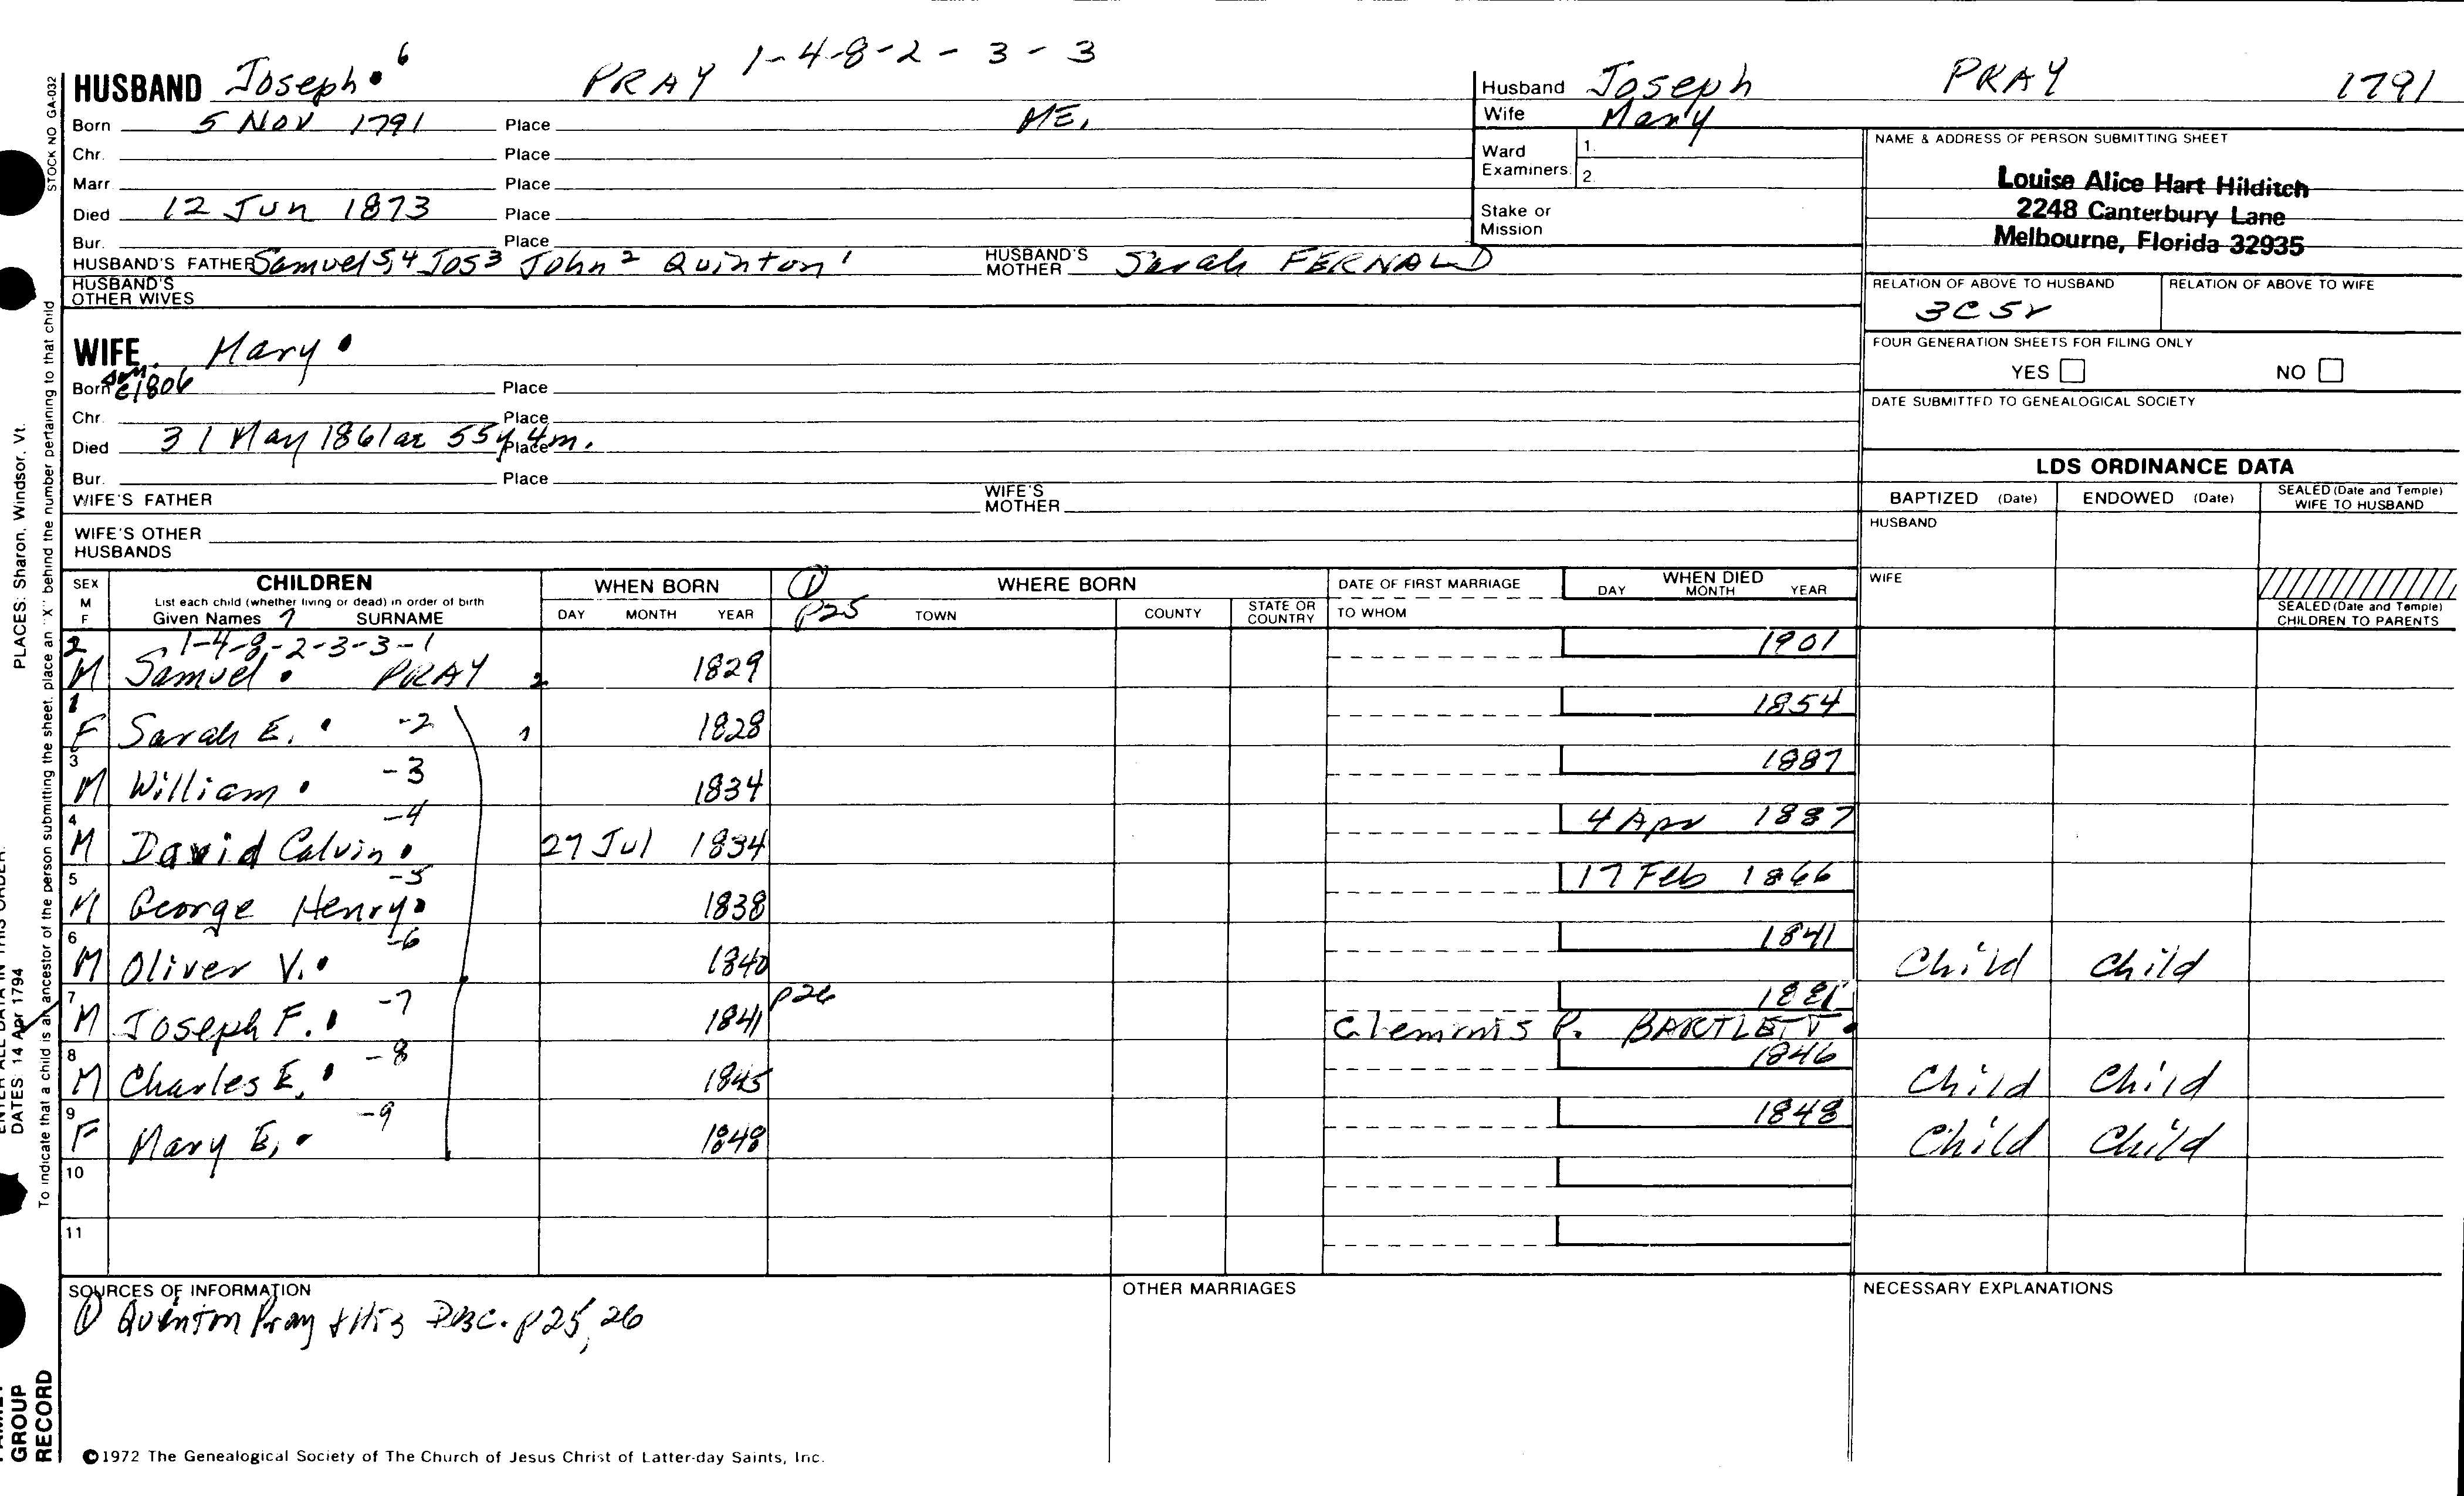 1-4-8-2-3-3
HUSBAND Joseph 6 PRAY
Born 5 Nov 1791 Place ME.
Chr. Place
Marr. Place
Died 12 Jun 1873 Place
Bur. Place
HUSBAND'S FATHER Samuel 5,4 Jos 3 John 2 Quinton 1 HUSBAND'S MOTHER Sarah FERNALD
HUSBAND'S OTHER WIVES
WIFE Mary
Born c1806 Place
Chr. Place
Died 31 May 1861 ae 55y 4m. Place
Bur. Place
WIFE'S FATHER WIFE'S MOTHER
WIFE'S OTHER HUSBANDS
Husband Joseph PRAY 1791
Wife Mary
Ward Examiners 1. 2.
Stake or Mission
NAME & ADDRESS OF PERSON SUBMITTING SHEET
Louise Alice Hart Hilditch
2248 Canterbury Lane
Melbourne, Florida 32935
RELATION OF ABOVE TO HUSBAND RELATION OF ABOVE TO WIFE
3C5r
FOUR GENERATION SHEETS FOR FILING ONLY
YES NO
DATE SUBMITTED TO GENEALOGICAL SOCIETY
LDS ORDINANCE DATA
BAPTIZED (Date) ENDOWED (Date) SEALED (Date and Temple) WIFE TO HUSBAND
HUSBAND
WIFE
SEALED (Date and Temple) CHILDREN TO PARENTS
SEX M F CHILDREN WHEN BORN 1 WHERE BORN DATE OF FIRST MARRIAGE WHEN DIED
List each child (whether living or dead) in order of birth
Given Names 7 SURNAME DAY MONTH YEAR p25 TOWN COUNTY STATE OR COUNTRY TO WHOM DAY MONTH YEAR
2 1-4-8-2-3-3-1 1901
M Samuel PRAY 2 1829
1 1854
F Sarah E. -2 1 1828
3 1887
M William -3 1834
4 -4 4 Apr 1887
M David Calvin 27 Jul 1834
5 -5 17 Feb 1866
M George Henry 1838
6 -6 1841
M Oliver V. 1840 Child Child
7 -7 p26 1881
M Joseph F. 1841 Clemmis P. BARTLETT
8 -8 1846
M Charles E. 1845 Child Child
9 -9 1848
F Mary E. 1848 Child Child
10
11
SOURCES OF INFORMATION OTHER MARRIAGES NECESSARY EXPLANATIONS
1 Quinton Pray & His Desc. p25, 26
©1972 The Genealogical Society of The Church of Jesus Christ of Latter-day Saints, Inc.
STOCK NO GA-032
To indicate that a child is an ancestor of the person submitting the sheet, place an "X" behind the number pertaining to that child
PLACES: Sharon, Windsor, Vt.
DATES: 14 Apr 1794
GROUP
RECORD